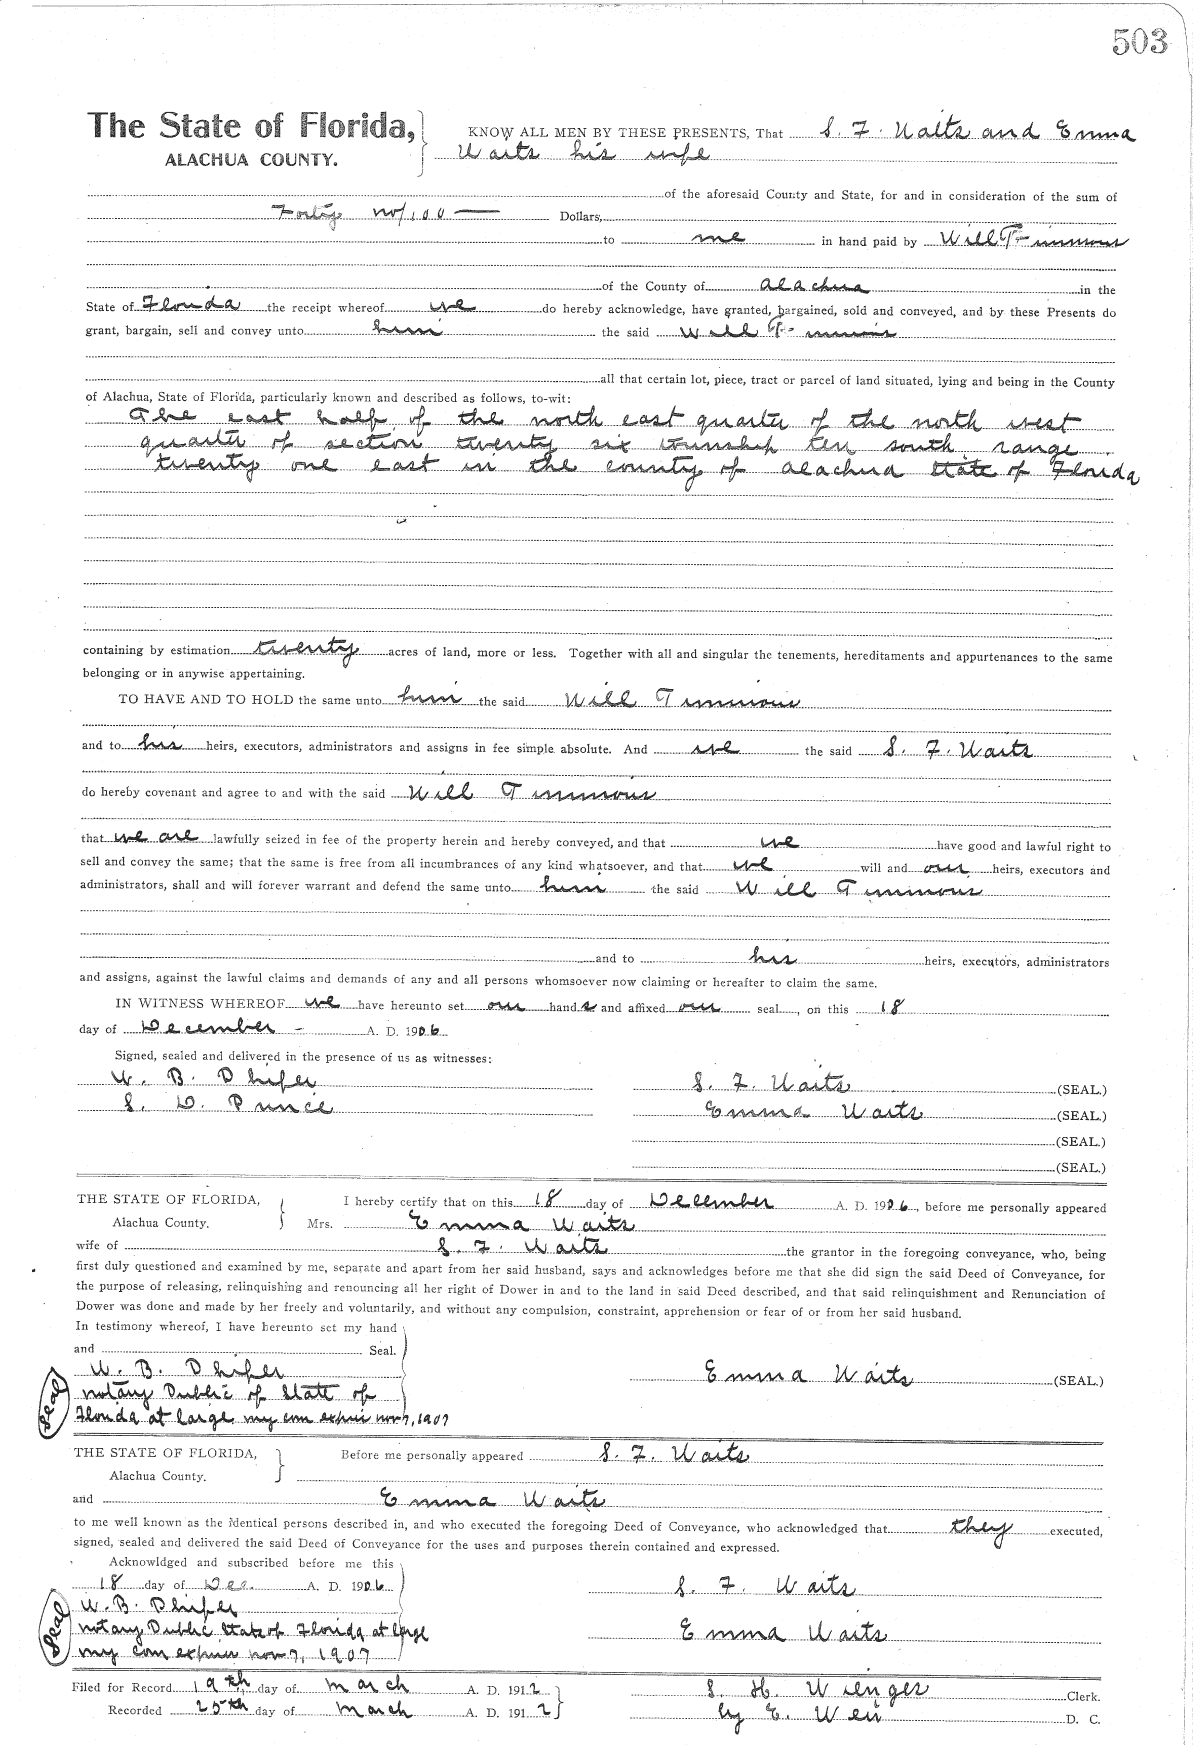 503
The State of Florida,
ALACHUA COUNTY.
KNOW ALL MEN BY THESE PRESENTS, That S. F. Waits and Emma
Waits his wife
of the aforesaid County and State, for and in consideration of the sum of
Forty no/100 Dollars,
to me in hand paid by Will Timmons
of the County of Alachua in the
State of Florida the receipt whereof we do hereby acknowledge, have granted, bargained, sold and conveyed, and by these Presents do
grant, bargain, sell and convey unto him the said Will Timmons
all that certain lot, piece, tract or parcel of land situated, lying and being in the County
of Alachua, State of Florida, particularly known and described as follows, to-wit:
The east half of the north east quarter of the north west
quarter of section twenty six township ten south range
twenty one east in the county of Alachua State of Florida
containing by estimation twenty acres of land, more or less. Together with all and singular the tenements, hereditaments and appurtenances to the same
belonging or in anywise appertaining.
TO HAVE AND TO HOLD the same unto him the said Will Timmons
and to his heirs, executors, administrators and assigns in fee simple absolute. And we the said S. F. Waits
do hereby covenant and agree to and with the said Will Timmons
that we are lawfully seized in fee of the property herein and hereby conveyed, and that we have good and lawful right to
sell and convey the same; that the same is free from all incumbrances of any kind whatsoever, and that we will and our heirs, executors and
administrators, shall and will forever warrant and defend the same unto him the said Will Timmons
and to his heirs, executors, administrators
and assigns, against the lawful claims and demands of any and all persons whomsoever now claiming or hereafter to claim the same.
IN WITNESS WHEREOF we have hereunto set our hands and affixed our seal, on this 18
day of December - A. D. 1906
Signed, sealed and delivered in the presence of us as witnesses:
W. B. Phifer
S. F. Waits (SEAL.)
S. D. Prince
Emma Waits (SEAL.)
(SEAL.)
(SEAL.)
THE STATE OF FLORIDA,
Alachua County.
I hereby certify that on this 18 day of December A. D. 1906, before me personally appeared
Mrs. Emma Waits
wife of S. F. Waits the grantor in the foregoing conveyance, who, being
first duly questioned and examined by me, separate and apart from her said husband, says and acknowledges before me that she did sign the said Deed of Conveyance, for
the purpose of releasing, relinquishing and renouncing all her right of Dower in and to the land in said Deed described, and that said relinquishment and Renunciation of
Dower was done and made by her freely and voluntarily, and without any compulsion, constraint, apprehension or fear of or from her said husband.
In testimony whereof, I have hereunto set my hand
and Seal.
W. B. Phifer
Emma Waits (SEAL.)
Seal
notary Public of State of
Florida at large my com expires nov 7, 1907
THE STATE OF FLORIDA,
Alachua County.
Before me personally appeared S. F. Waits
and Emma Waits
to me well known as the identical persons described in, and who executed the foregoing Deed of Conveyance, who acknowledged that they executed,
signed, sealed and delivered the said Deed of Conveyance for the uses and purposes therein contained and expressed.
Acknowldged and subscribed before me this
18 day of Dec. A. D. 1906
S. F. Waits
W. B. Phifer
Seal
notary Public State of Florida at large
Emma Waits
my com expires nov 7, 1907
Filed for Record 19th day of March A. D. 1912
S. H. Wienges Clerk.
Recorded 25th day of March A. D. 1912
by E. Weir D. C.